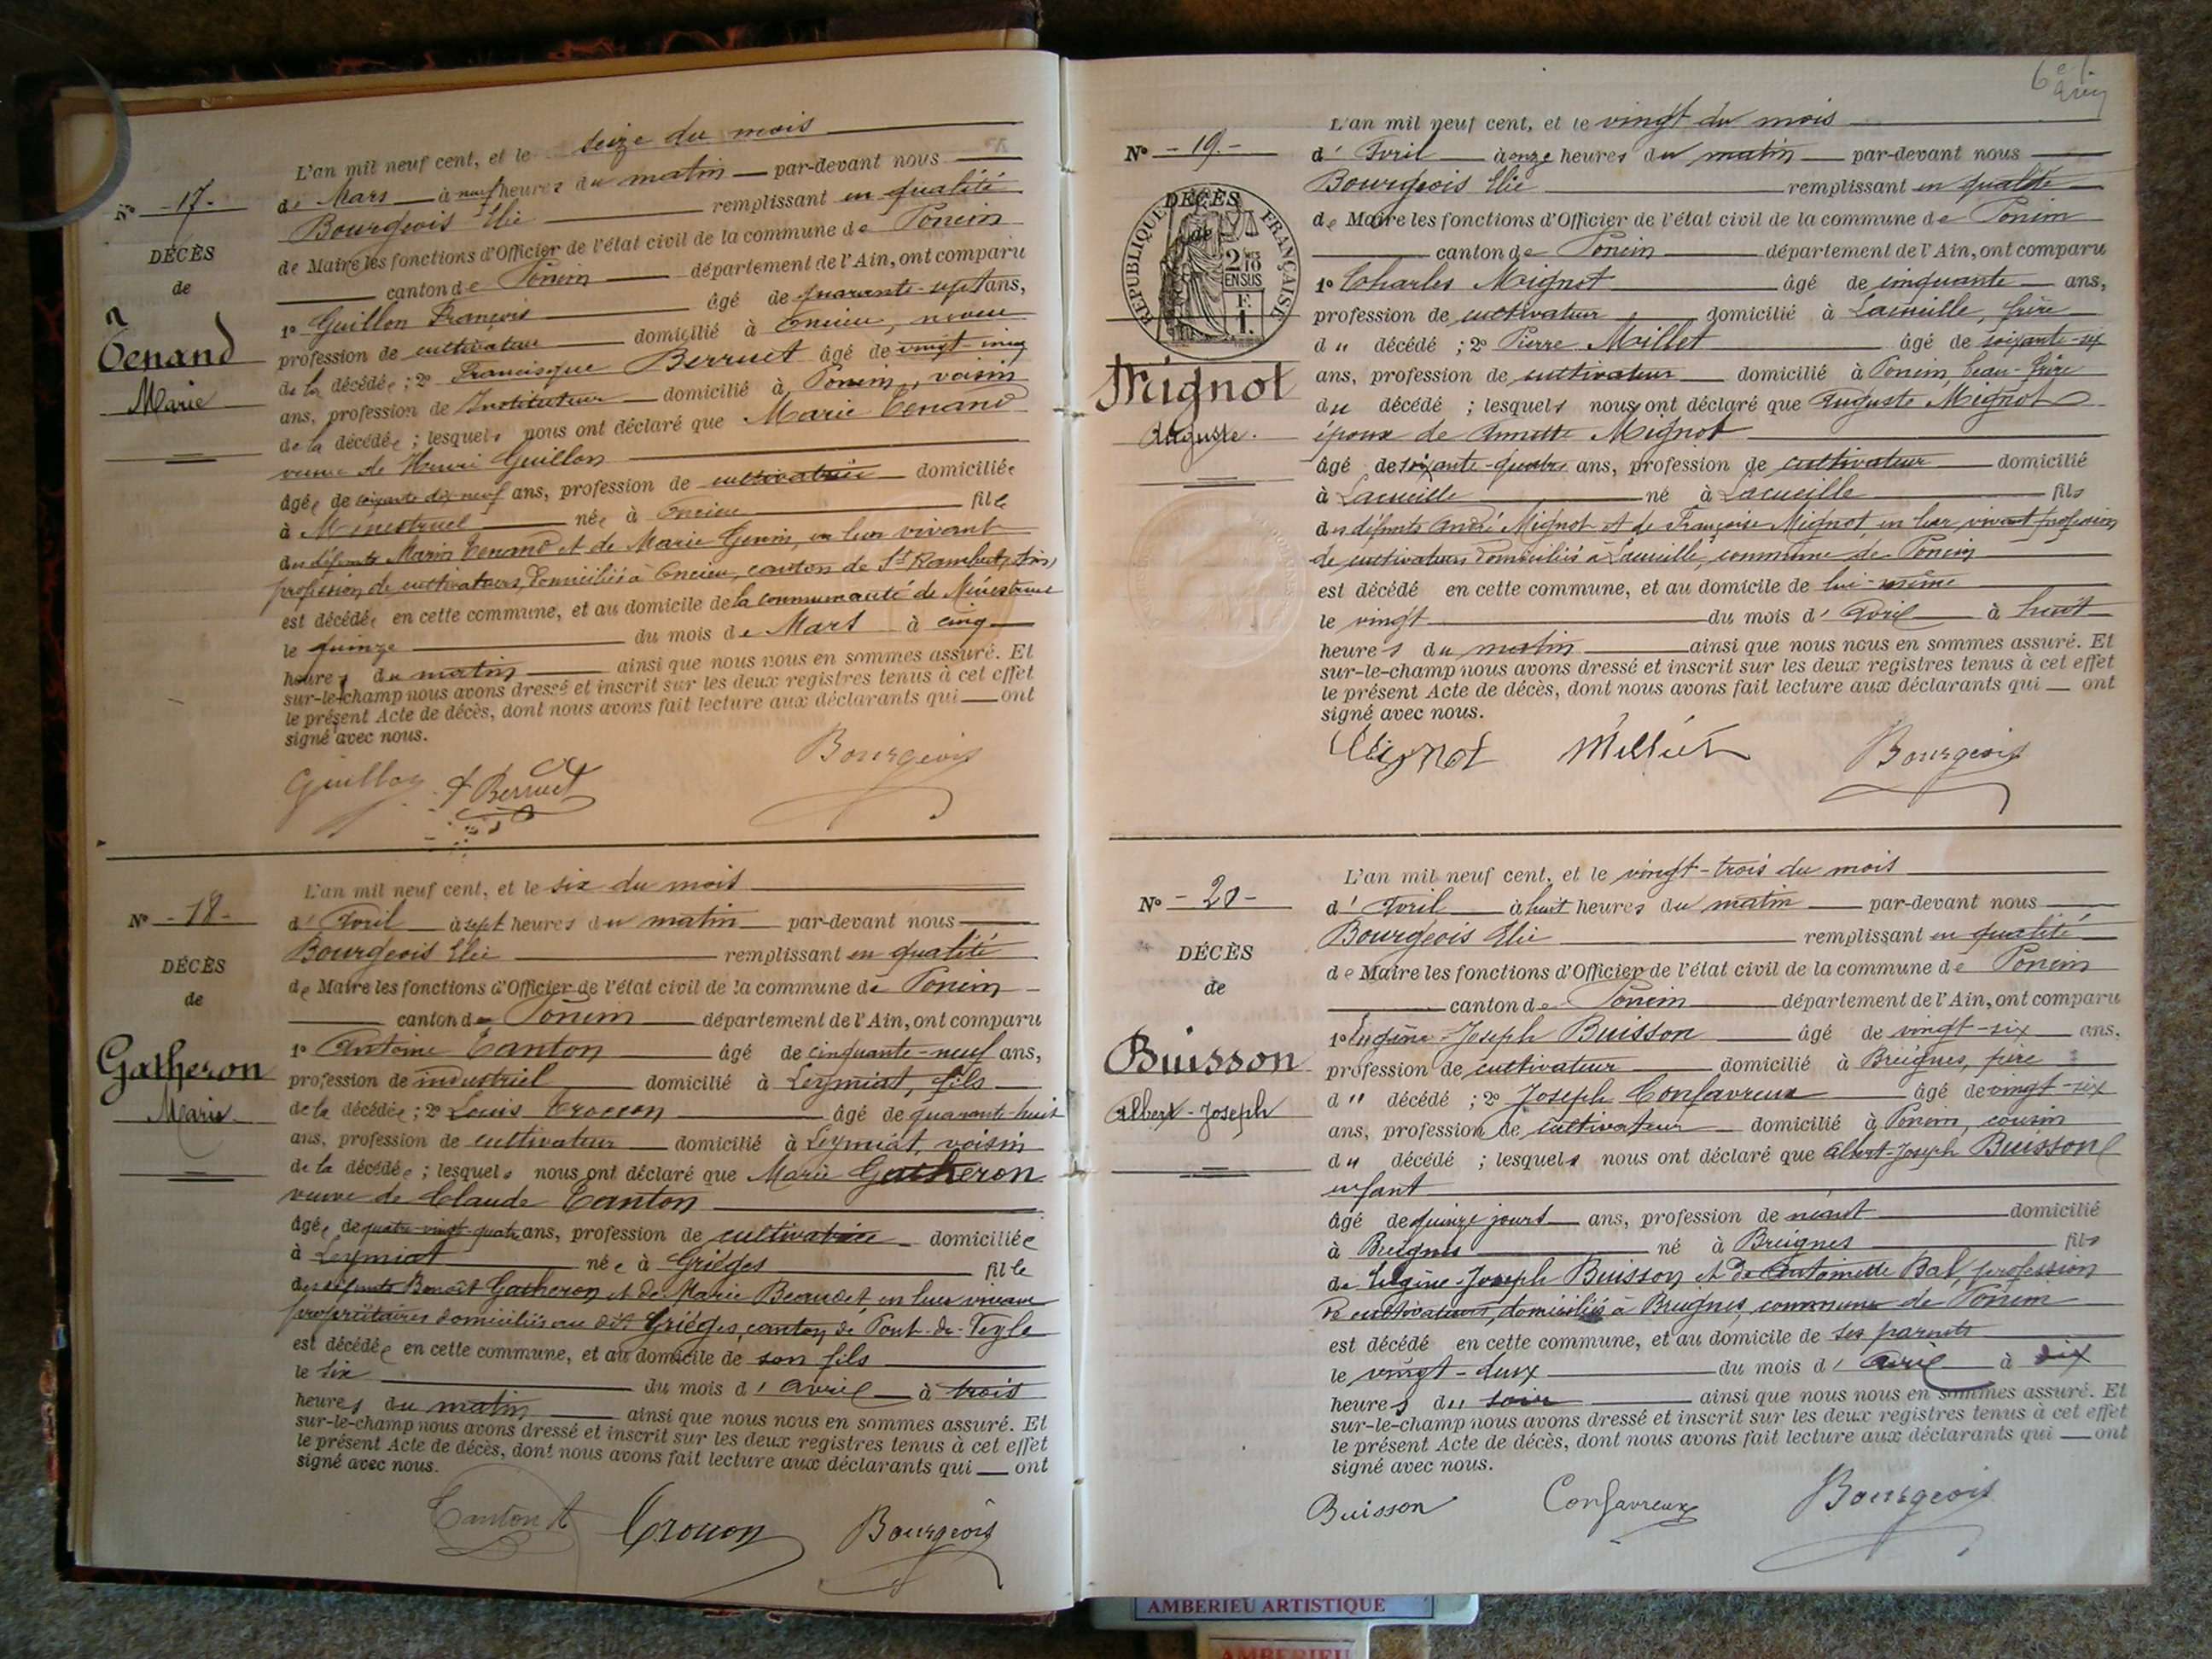 L'an mil neuf cent, et le seize du mois
Nº -17-
de Mars à neuf heures du matin par-devant nous
Bourgeois Elie remplissant en qualité
DÉCÈS
de Maire les fonctions d'Officier de l'état civil de la commune de Poncin
de
canton de Poncin département de l'Ain, ont comparu
1º Guillon François âgé de quarante-sept ans,
Tenand
profession de cultivateur domicilié à Oncieu, neveu
de la décédée ; 2º Francisque Berruet âgé de vingt-cinq
Marie
ans, profession de Instituteur domicilié à Poncin, voisin
de la décédée ; lesquels nous ont déclaré que Marie Tenand
veuve de Henri Guillon
âgée de soixante dix-neuf ans, profession de cultivatrice domiciliée
à Ménestruel née à Oncieu fille
des défunts Marin Tenand et de Marie Genin, en leur vivant
profession de cultivateurs, domiciliés à Oncieu, canton de St Rambert, Ain,
est décédée en cette commune, et au domicile de la communauté de Ménestruel
le quinze du mois de Mars à cinq
heures du matin ainsi que nous nous en sommes assuré. Et
sur-le-champ nous avons dressé et inscrit sur les deux registres tenus à cet effet
le présent Acte de décès, dont nous avons fait lecture aux déclarants qui ont
signé avec nous.
Guillon F Berruet Bourgeois
L'an mil neuf cent, et le six du mois
Nº -18-
d'Avril à sept heures du matin par-devant nous
Bourgeois Elie remplissant en qualité
DÉCÈS
de Maire les fonctions d'Officier de l'état civil de la commune de Poncin
de
canton de Poncin département de l'Ain, ont comparu
1º Antoine Tanton âgé de cinquante-neuf ans,
Gatheron
profession de industriel domicilié à Leymiat, fils
Marie
de la décédée ; 2º Louis Croccon âgé de quarante-huit
ans, profession de cultivateur domicilié à Leymiat, voisin
de la décédée ; lesquels nous ont déclaré que Marie Gatheron
veuve de Claude Tanton
âgée de quatre-vingt-quatre ans, profession de cultivatrice domiciliée
à Leymiat née à Grièges fille
des défunts Benoît Gatheron et de Marie Beaudet en leur vivant
propriétaires domiciliés au dit Grièges, canton de Pont-de-Veyle
est décédée en cette commune, et au domicile de son fils
le six du mois d'avril à trois
heures du matin ainsi que nous nous en sommes assuré. Et
sur-le-champ nous avons dressé et inscrit sur les deux registres tenus à cet effet
le présent Acte de décès, dont nous avons fait lecture aux déclarants qui ont
signé avec nous.
Tanton A Bourgeois
6e f.
L'an mil neuf cent, et le vingt du mois
Nº -19-
d'Avril à onze heures du matin par-devant nous
Bourgeois Elie remplissant en qualité
DÉCÈS
de
RÉPUBLIQUE FRANÇAISE
2/10 EN SUS
F.
1.
de Maire les fonctions d'Officier de l'état civil de la commune de Poncin
canton de Poncin département de l'Ain, ont comparu
1º Charles Mignot âgé de cinquante ans,
profession de cultivateur domicilié à Lacueille, frère
du décédé ; 2º Pierre Millet âgé de soixante-six
Mignot
ans, profession de cultivateur domicilié à Poncin, beau-frère
du décédé ; lesquels nous ont déclaré que Auguste Mignot
Auguste.
époux de Annette Mignot
âgé de soixante-quatre ans, profession de cultivateur domicilié
à Lacueille né à Lacueille fils
des défunts André Mignot et de Françoise Mignot, en leur vivant profession
de cultivateurs domiciliés à Lacueille, commune de Poncin
est décédé en cette commune, et au domicile de lui-même
le vingt du mois d'Avril à huit
heures du matin ainsi que nous nous en sommes assuré. Et
sur-le-champ nous avons dressé et inscrit sur les deux registres tenus à cet effet
le présent Acte de décès, dont nous avons fait lecture aux déclarants qui ont
signé avec nous.
Mignot Bourgeois
L'an mil neuf cent, et le vingt-trois du mois
Nº -20-
d'Avril à huit heures du matin par-devant nous
Bourgeois Elie remplissant en qualité
DÉCÈS
de Maire les fonctions d'Officier de l'état civil de la commune de Poncin
de
canton de Poncin département de l'Ain, ont comparu
1º Eugène-Joseph Buisson âgé de vingt-six ans,
Buisson
profession de cultivateur domicilié à Breignes, père
du décédé ; 2º Joseph Confavreux âgé de vingt-six
Albert-Joseph
ans, profession de cultivateur domicilié à Poncin, cousin
du décédé ; lesquels nous ont déclaré que Albert-Joseph Buisson
enfant
âgé de quinze jours ans, profession de néant domicilié
à Breignes né à Breignes fils
de Eugène-Joseph Buisson et de Antoinette Bal, profession
de cultivateurs, domiciliés à Breignes, commune de Poncin
est décédé en cette commune, et au domicile de ses parents
le vingt-deux du mois d'avril à dix
heures du soir ainsi que nous nous en sommes assuré. Et
sur-le-champ nous avons dressé et inscrit sur les deux registres tenus à cet effet
le présent Acte de décès, dont nous avons fait lecture aux déclarants qui ont
signé avec nous.
Buisson Confavreux Bourgeois
AMBERIEU ARTISTIQUE
AMBERIEU